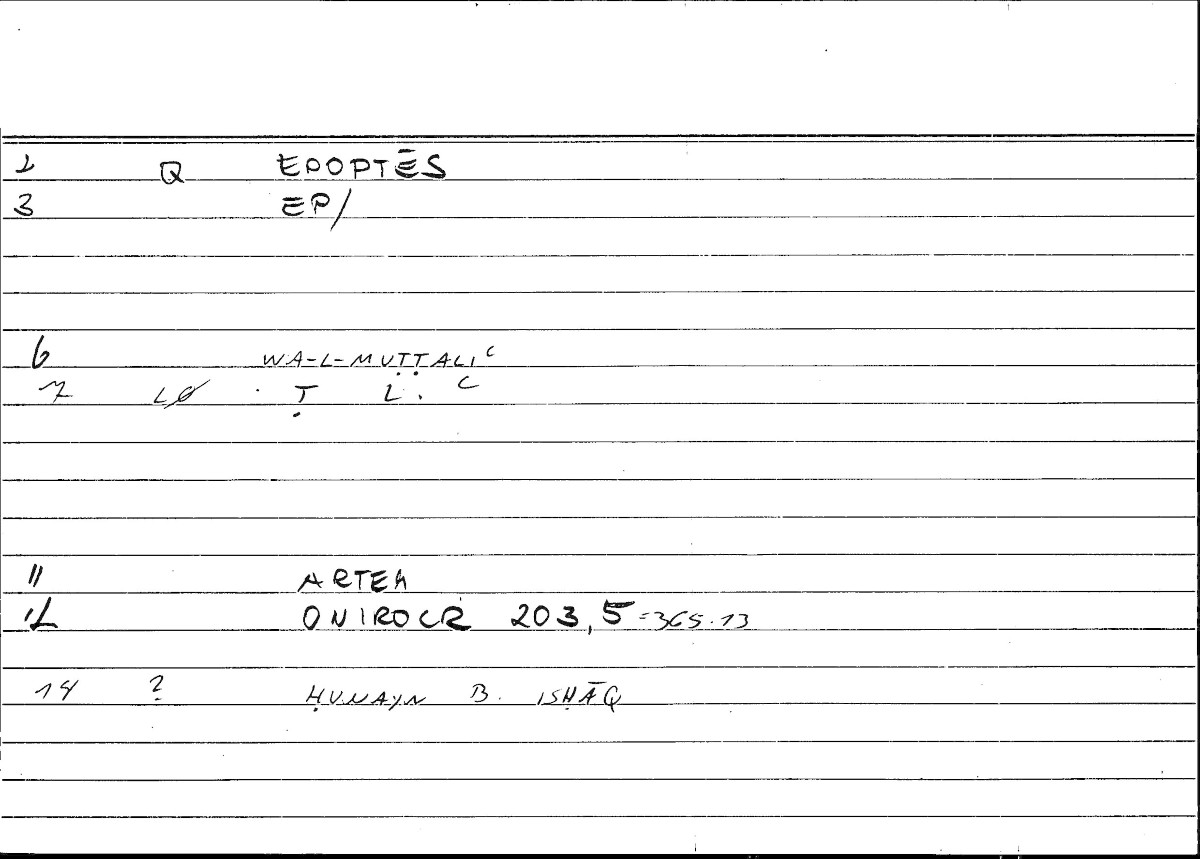 2 Q EPOPTĒS
3 EP/
6 WA-L-MUṬṬALIʿ
7 LØ . Ṭ L . ʿ
11 ARTEM
12 ONIROCR 203,5 =365.13
14 ? ḤUNAYN B. ISḤĀQ